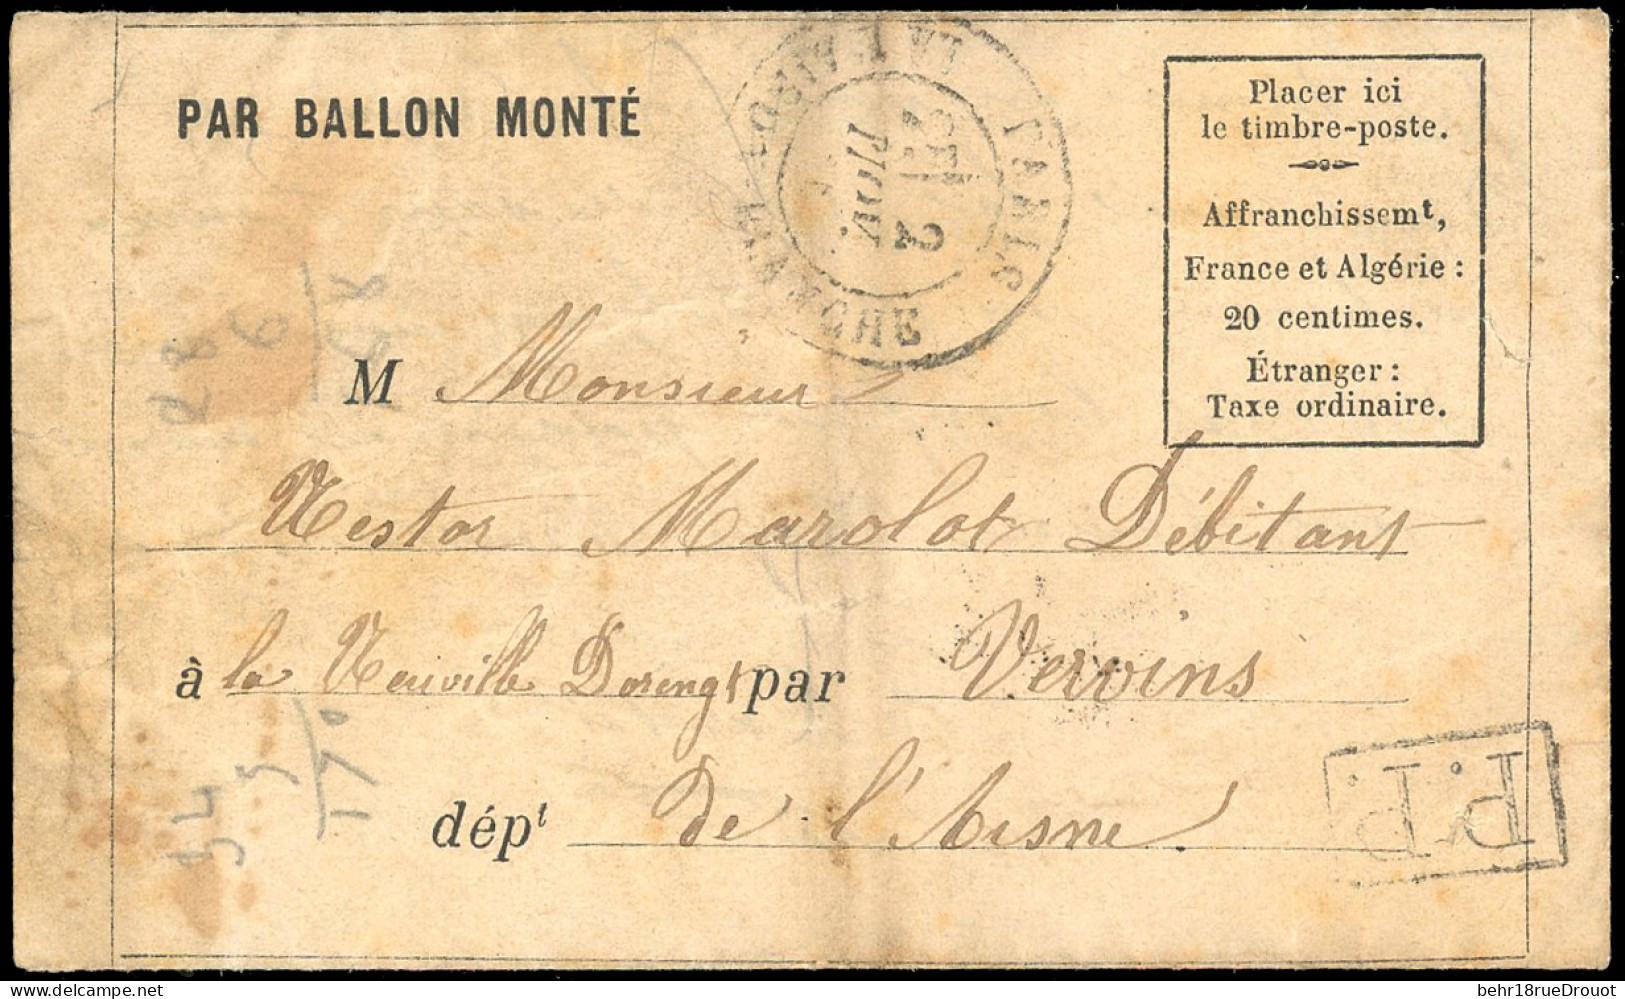 PAR BALLON MONTÉ
PARIS
NOV.
Placer ici
le timbre-poste.
Affranchissemt,
France et Algérie :
20 centimes.
Étranger :
Taxe ordinaire.
28
6
168
M Monsieur
Nestor Marolot Débitant
à la Neuville Dorengt par Vervins
34
5
170
dépt de l'Aisne.
P.P.
behr18rueDrouot